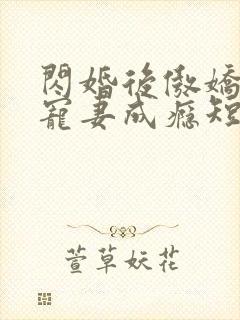 閃婚後傲嬌
寵妻成癮短
萱草妖花